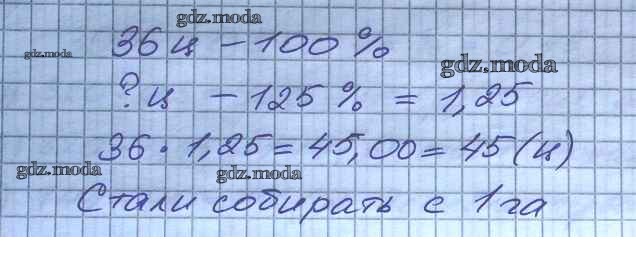 gdz.moda
36 ц – 100 %
gdz.moda
gdz.moda
? ц – 125 % = 1,25
36 · 1,25 = 45,00 = 45 (ц)
gdz.moda
gdz.moda
Стали собирать с 1 га